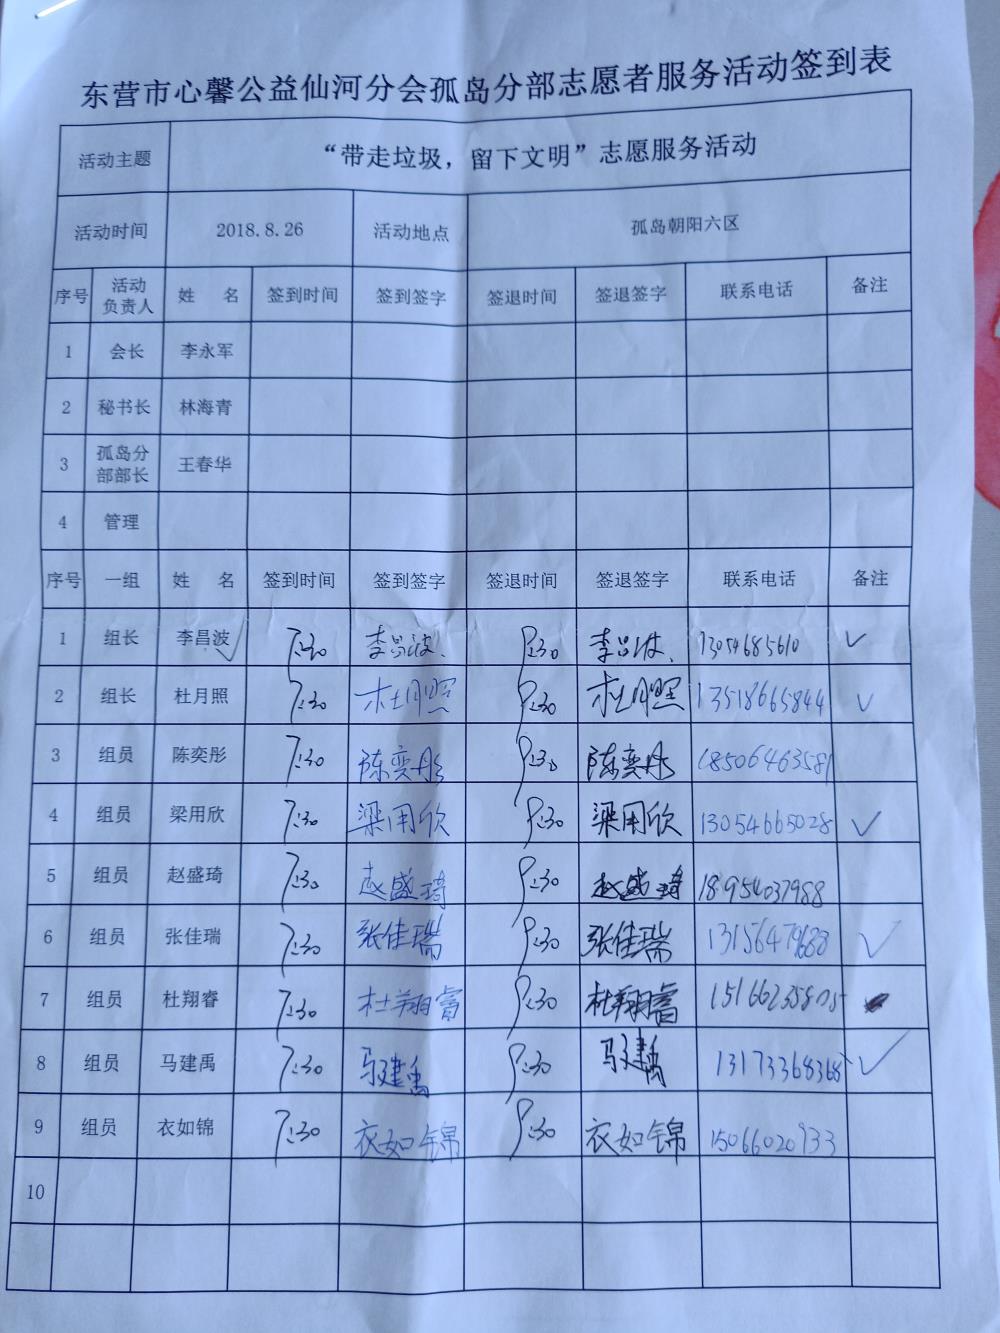 东营市心馨公益仙河分会孤岛分部志愿者服务活动签到表
活动主题 “带走垃圾，留下文明”志愿服务活动
活动时间 2018.8.26 活动地点 孤岛朝阳六区
序号 活动负责人 姓 名 签到时间 签到签字 签退时间 签退签字 联系电话 备注
1 会长 李永军
2 秘书长 林海青
3 孤岛分部部长 王春华
4 管理
序号 一组 姓 名 签到时间 签到签字 签退时间 签退签字 联系电话 备注
1 组长 李昌波 ✓ 7:30 李昌波. 9:30 李昌波. 13054685610 ✓
2 组长 杜月照 7:30 杜月照 9:30 杜月照 13518665844 ✓
3 组员 陈奕彤 7:30 陈奕彤 9:30 陈奕彤 18506463581
4 组员 梁用欣 7:30 梁用欣 9:30 梁用欣 13054665028 ✓
5 组员 赵盛琦 7:30 赵盛琦 9:30 赵盛琦 18954037988
6 组员 张佳瑞 7:30 张佳瑞 9:30 张佳瑞 ✓
7 组员 杜翔睿 7:30 杜翔睿 9:30 杜翔睿 15166235805
8 组员 马建禹 7:30 马建禹 9:30 马建禹 13173368368 ✓
9 组员 衣如锦 7:30 衣如锦 9:30 衣如锦 15066020933
10